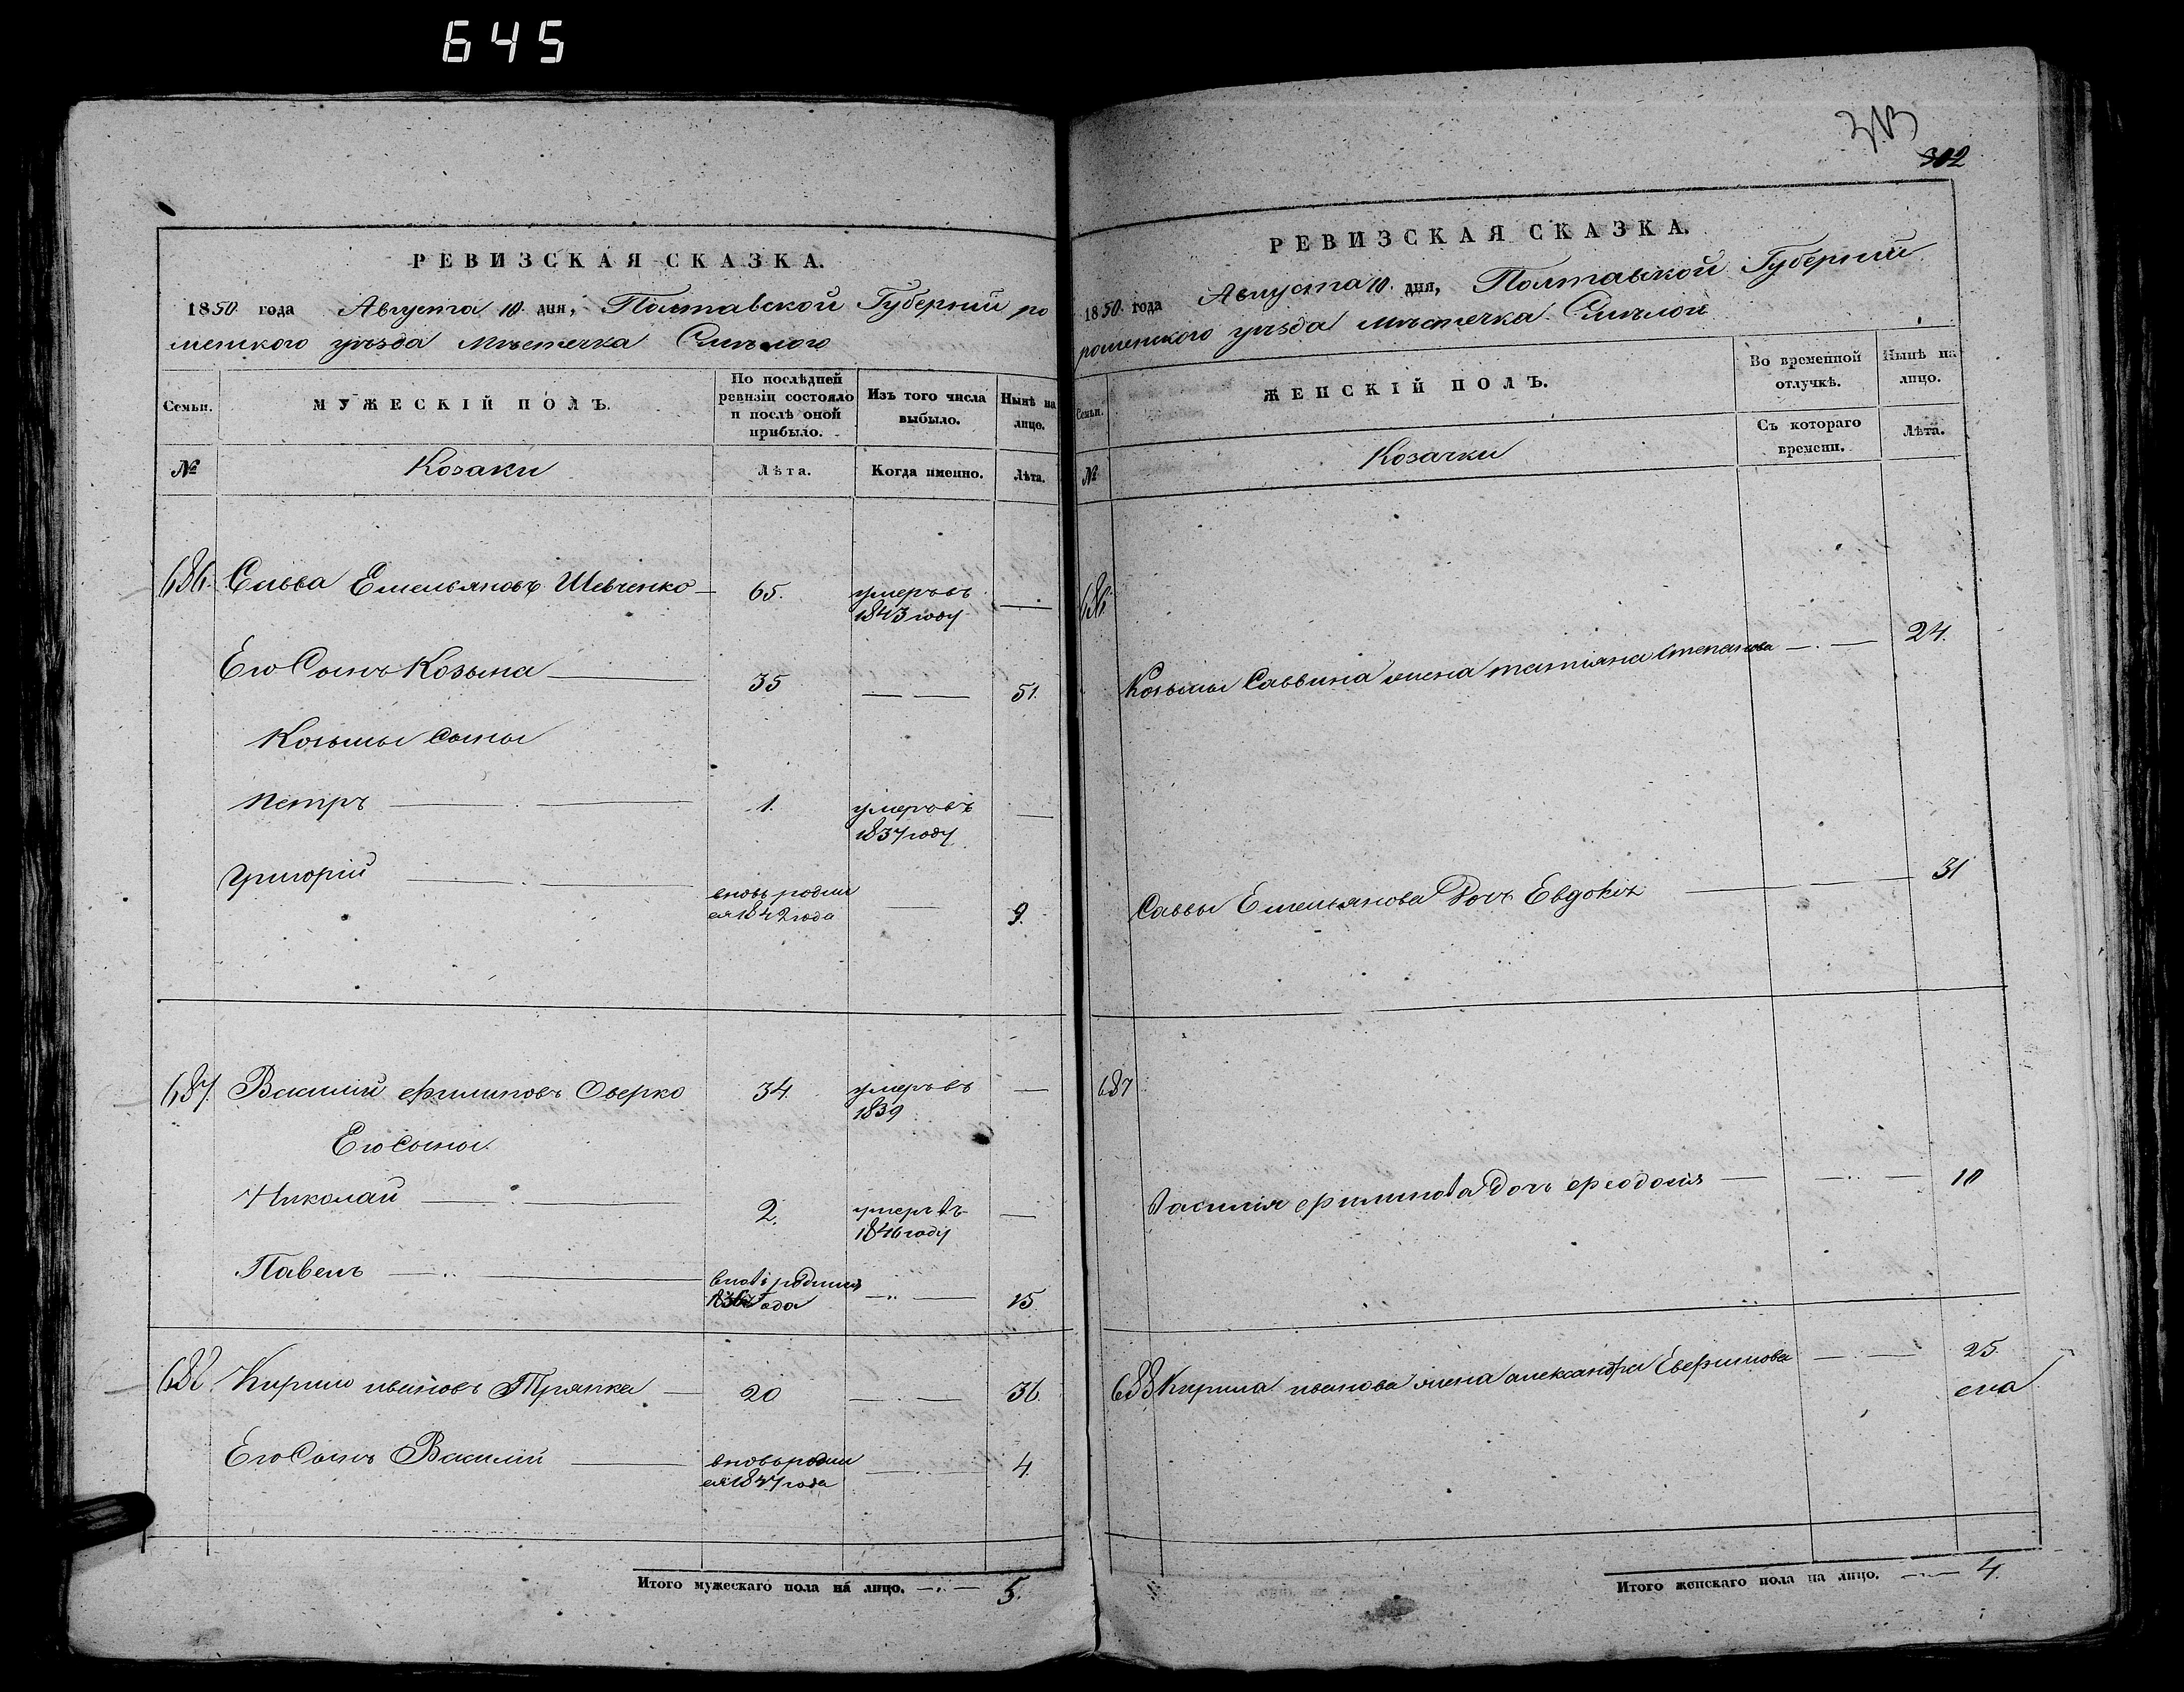 645
РЕВИЗСКАЯ СКАЗКА.
1850 года Августа 10 дня, Полтавской Губернии ро
менского уѣзда мѣстечка Смѣлого
Семьи.
МУЖЕСКІЙ ПОЛЪ.
По послѣдней
ревизіи состояло
и послѣ оной
прибыло.
Изъ того числа
выбыло.
Нынѣ на
лицо.
№
Козаки
Лѣта.
Когда именно.
Лѣта.
686. Савва Емельяновъ Шевченко 65. умеръ въ
1843 году
Его Сынъ Козьма 35 51.
Козьмы сыны
Петръ 1. умеръ въ
1837 году
Григорій вновь родил
ся 1842 года 9.
687. Василій филиповъ Оверко 34. умеръ въ
1839
Его Сыны
Николай 2. умеръ въ
1846 году
Павелъ вновь родился
года 15
688 Кирило ивановъ Тряпка 20 36.
Его Сынъ Василій вновь родил
ся 1847 года 4.
Итого мужескаго пола на лицо. 5.
313
302
РЕВИЗСКАЯ СКАЗКА.
1850 года Августа 10 дня, Полтавской Губернии
роменского уѣзда мѣстечка Смѣлой
Семьи.
ЖЕНСКІЙ ПОЛЪ.
Во временной
отлучкѣ.
Нынѣ на
лицо.
№
Козачки
Съ котораго
времени.
Лѣта.
686
Козьмы Саввина жена татіяна степанова 24.
Саввы Емельянова Дочь Евдокія 31
687
Василія филипова Дочь феодосія 10
688 Кирила иванова жена александра Евфимова 25.
Итого женскаго пола на лицо. 4.